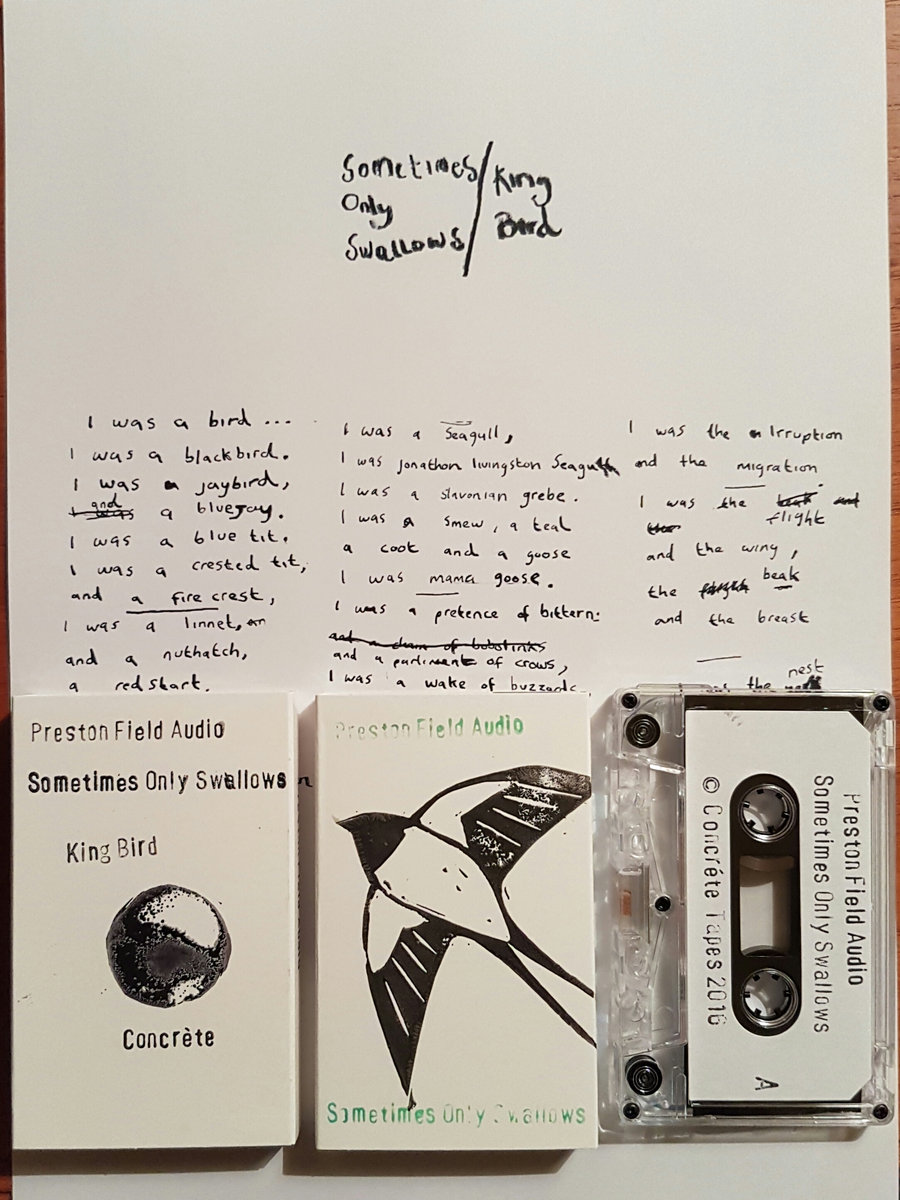 Sometimes/King
Only Bird
Swallows
I was a bird ...
I was a blackbird.
I was a jaybird,
I was and a bluejay.
I was a blue tit.
I was a crested tit,
and a fire crest,
I was a linnet,
and a nuthatch,
a redstart.
I was a Seagull,
I was Jonathon livingston Seagull
I was a slavonian grebe.
I was a smew, a teal
a coot and a goose
I was mama goose.
I was a pretence of bittern.
and a chain of bobolinks
and a parliment of crows,
I was a wake of buzzards
I was the Irruption
and the migration.
I was the beak and
the flight
and the wing,
the flight beak
and the breast
the nest
nest
Preston Field Audio
Sometimes Only Swallows
King Bird
Concrète
Preston Field Audio
Sometimes Only Swallows
Preston Field Audio
Sometimes Only Swallows
© Concréte Tapes 2016
A